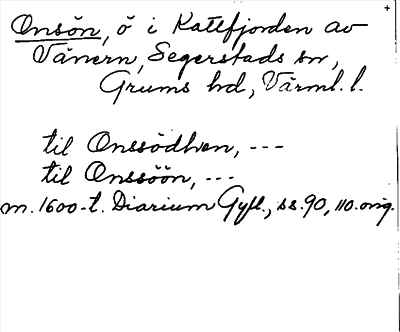 Onsön, ö i Kattfjorden av
Vänern, Segerstads sn,
Grums hd, Värml. l.
til Onssödhen, ---
til Onssöön, ---
m. 1600-t. Diarium Gyll., ss. 90, 110. orig.